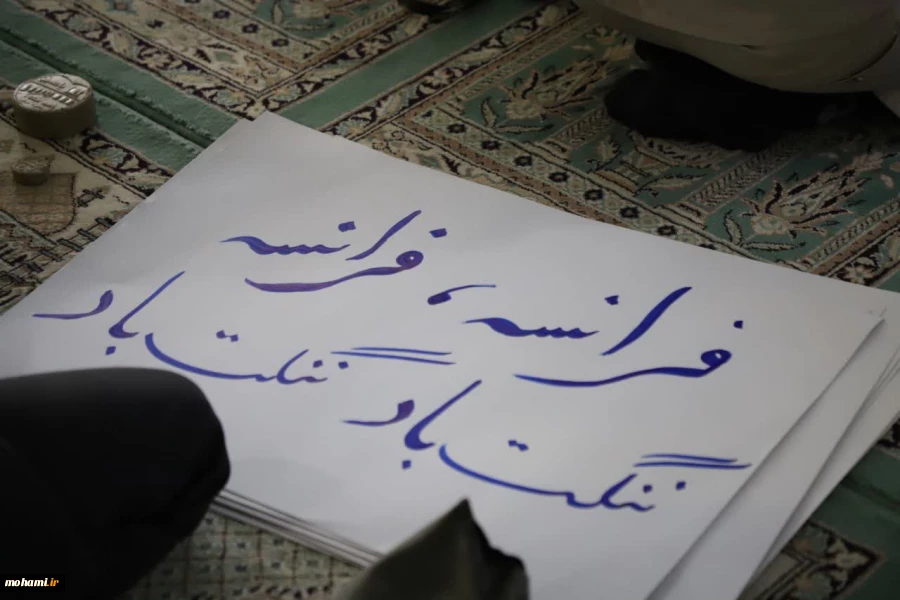 فرانسه، فرانسه
ننگت باد ننگت باد
mohami.ir